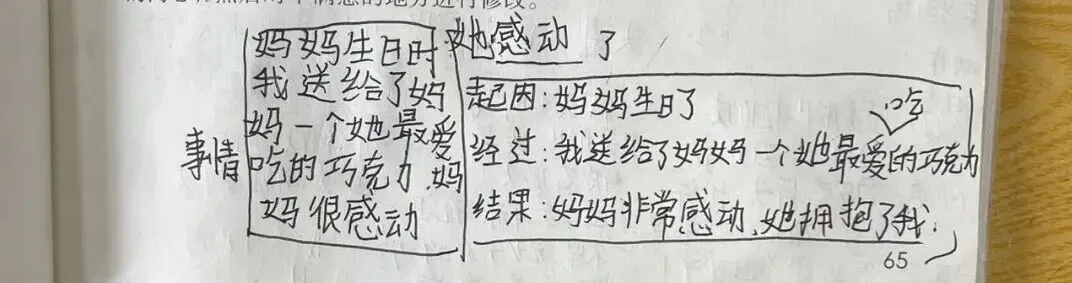 然后对不满意的地方进行修改。
她感动了
事情
妈妈生日时
我送给了妈
妈一个她最爱
吃的巧克力,妈
妈很感动
起因:妈妈生日了
经过:我送给了妈妈一个她最爱吃的巧克力
结果:妈妈非常感动,她拥抱了我.
65